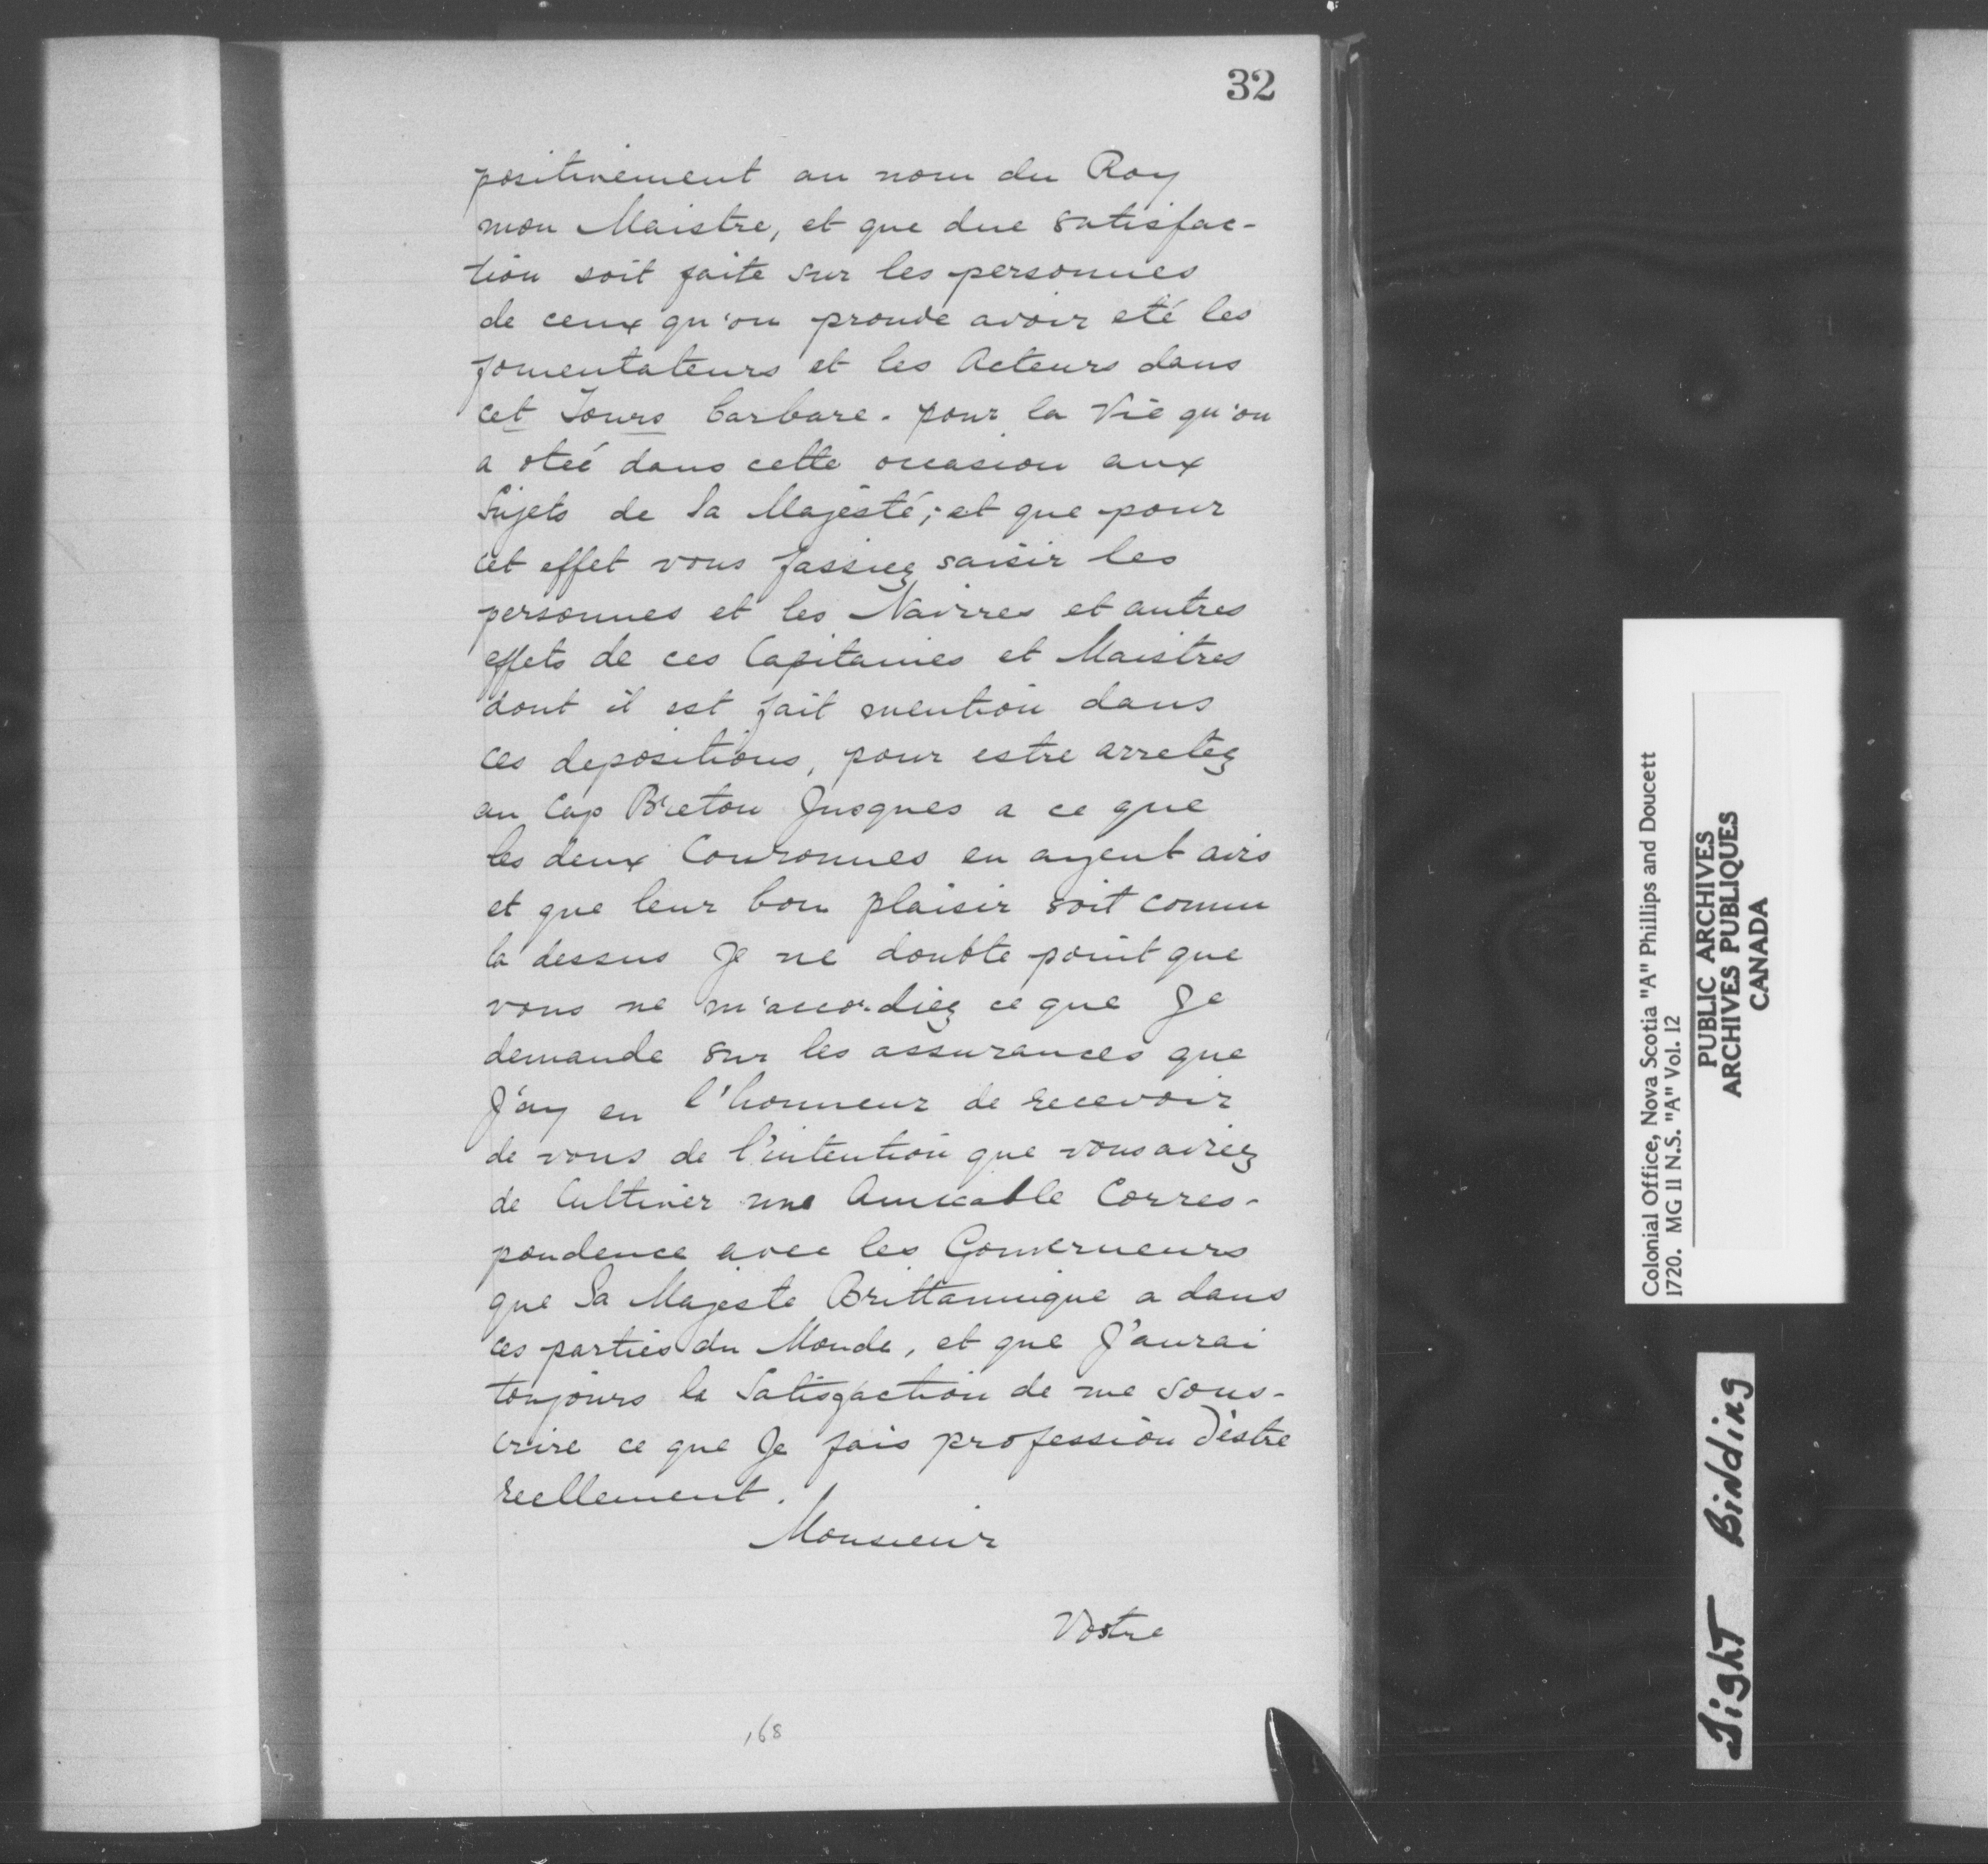 32
positivement au nom du Roy
mon Maistre, et que due satisfac-
tion soit faite sur les personnes
de ceux qu'on prouve avoir eté les
fomentateurs et les Acteurs dans
cet Tours barbare. pour la Vie qu'on
a oteé dans cette occasion aux
Sujets de Sa Majesté; et que pour
cet effet vous fassiez saisir les
personnes et les Navires et autres
effets de ces Capitaines et Maistres
dont il est fait mention dans
ces depositions, pour estre arretez
au Cap Breton Jusques a ce que
les deux Couronnes en ayent avis
et que leur bon plaisir soit connu
la dessus Je ne doubte point que
vous ne m'accordiez ce que Je
demande sur les assurances que
J'ay eu l'honneur de recevoir
de vous de l'intention que vous aviez
de Cultiver une Amicable Corres-
pondence avec les Gouverneurs
que Sa Majeste Brittannique a dans
ces parties du Monde, et que J'aurai
toujours la Satisfaction de me sous-
crire ce que Je fais profession d'estre
reellement.
Monsieur
Vostre
168
Colonial Office, Nova Scotia "A" Phillips and Doucett
1720. MG 11 N.S. "A" Vol. 12
PUBLIC ARCHIVES
ARCHIVES PUBLIQUES
CANADA
Tight Binding